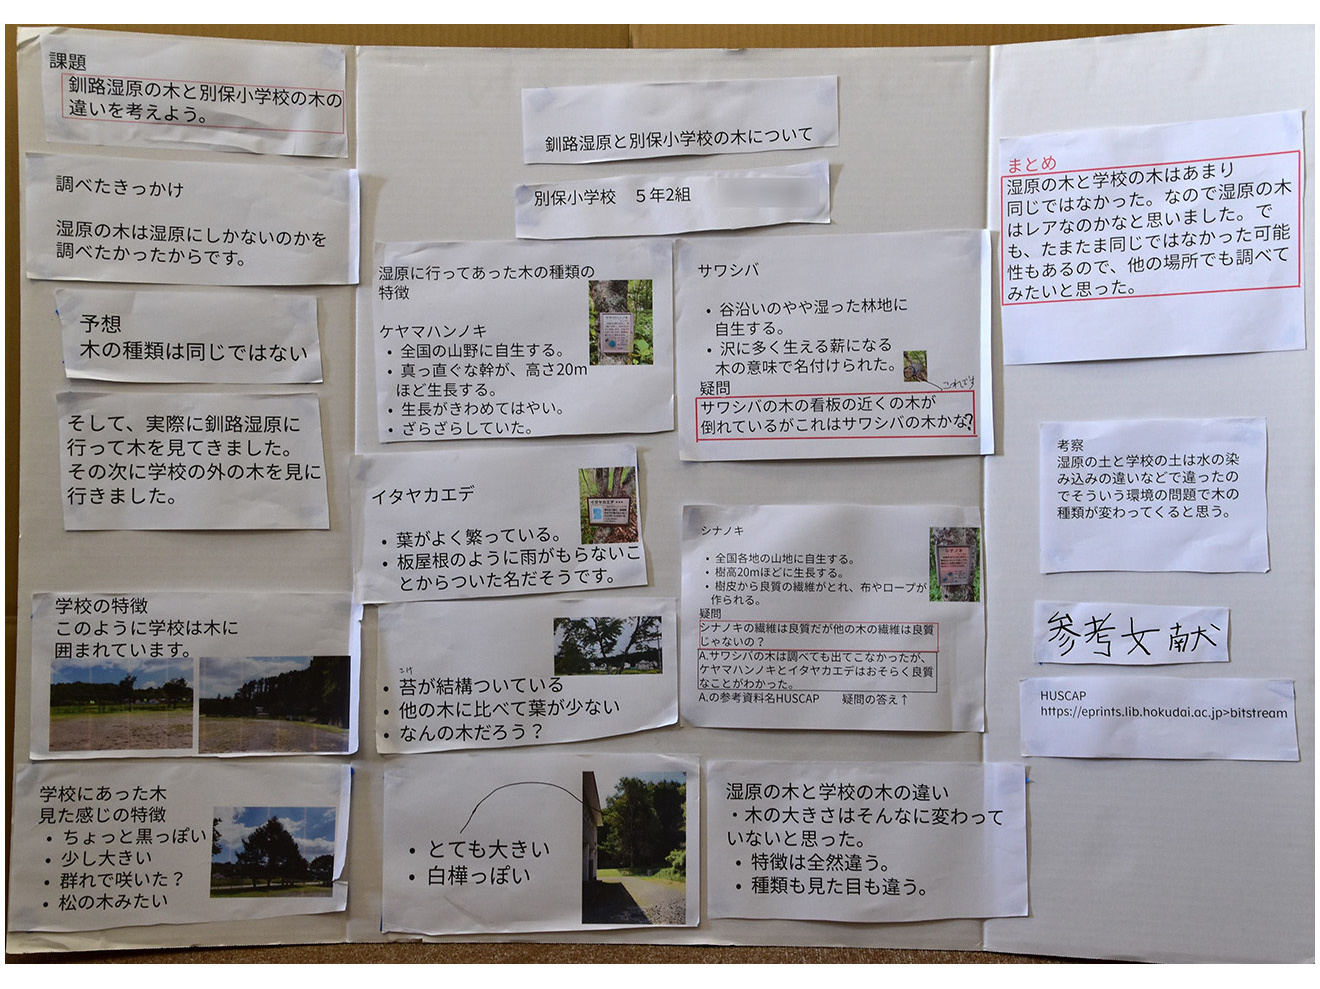 課題
釧路湿原の木と別保小学校の木の
違いを考えよう。
調べたきっかけ
湿原の木は湿原にしかないのかを
調べたかったからです。
予想
木の種類は同じではない
そして、実際に釧路湿原に
行って木を見てきました。
その次に学校の外の木を見に
行きました。
学校の特徴
このように学校は木に
囲まれています。
学校にあった木
見た感じの特徴
・ちょっと黒っぽい
・少し大きい
・群れで咲いた？
・松の木みたい
釧路湿原と別保小学校の木について
別保小学校　５年2組
湿原に行ってあった木の種類の
特徴
ケヤマハンノキ
・全国の山野に自生する。
・真っ直ぐな幹が、高さ20m
ほど生長する。
・生長がきわめてはやい。
・ざらざらしていた。
イタヤカエデ
・葉がよく繁っている。
・板屋根のように雨がもらないこ
とからついた名だそうです。
イタヤカエデ
こけ
・苔が結構ついている
・他の木に比べて葉が少ない
・なんの木だろう？
・とても大きい
・白樺っぽい
サワシバ
・谷沿いのやや湿った林地に
自生する。
・沢に多く生える薪になる
木の意味で名付けられた。
これです
疑問
サワシバの木の看板の近くの木が
倒れているがこれはサワシバの木かな?
シナノキ
・全国各地の山地に自生する。
・樹高20mほどに生長する。
・樹皮から良質の繊維がとれ、布やロープが
作られる。
シナノキ
疑問
シナノキの繊維は良質だが他の木の繊維は良質
じゃないの？
A.サワシバの木は調べても出てこなかったが、
ケヤマハンノキとイタヤカエデはおそらく良質
なことがわかった。
A.の参考資料名HUSCAP　疑問の答え↑
湿原の木と学校の木の違い
・木の大きさはそんなに変わって
いないと思った。
・特徴は全然違う。
・種類も見た目も違う。
まとめ
湿原の木と学校の木はあまり
同じではなかった。なので湿原の木
はレアなのかなと思いました。で
も、たまたま同じではなかった可能
性もあるので、他の場所でも調べて
みたいと思った。
考察
湿原の土と学校の土は水の染
み込みの違いなどで違ったの
でそういう環境の問題で木の
種類が変わってくると思う。
参考文献
HUSCAP
https://eprints.lib.hokudai.ac.jp>bitstream